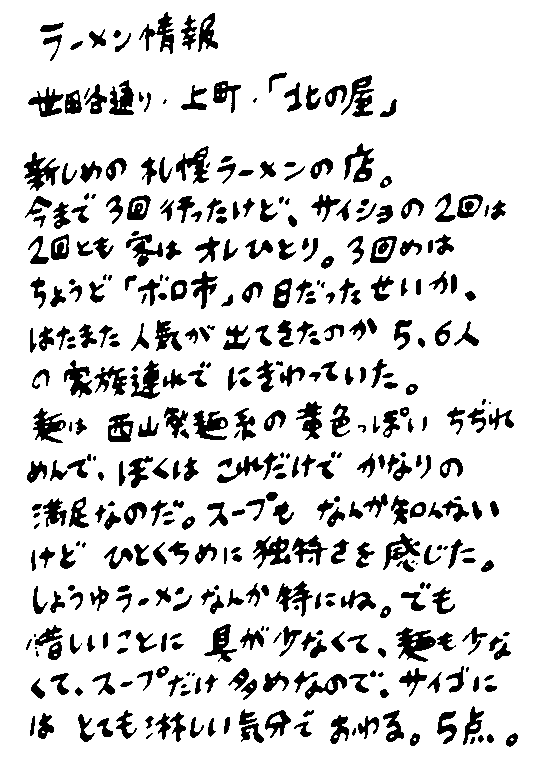 ラーメン情報
世田谷通り・上町・「北の屋」
新しめの札幌ラーメンの店。
今まで3回行ったけど、サイショの2回は
2回とも客はオレひとり。3回めは
ちょうど「ボロ市」の日だったせいか、
はたまた人気が出てきたのか5、6人
の家族連れでにぎわっていた。
麺は西山製麺系の黄色っぽいちぢれ
めんで、ぼくはこれだけでかなりの
満足なのだ。スープもなんか知んない
けどひとくちめに独特さを感じた。
しょうゆラーメンなんか特にね。でも
惜しいことに具が少なくて、麺も少な
くて、スープだけ多めなので、サイゴに
はとても淋しい気分でおわる。5点。